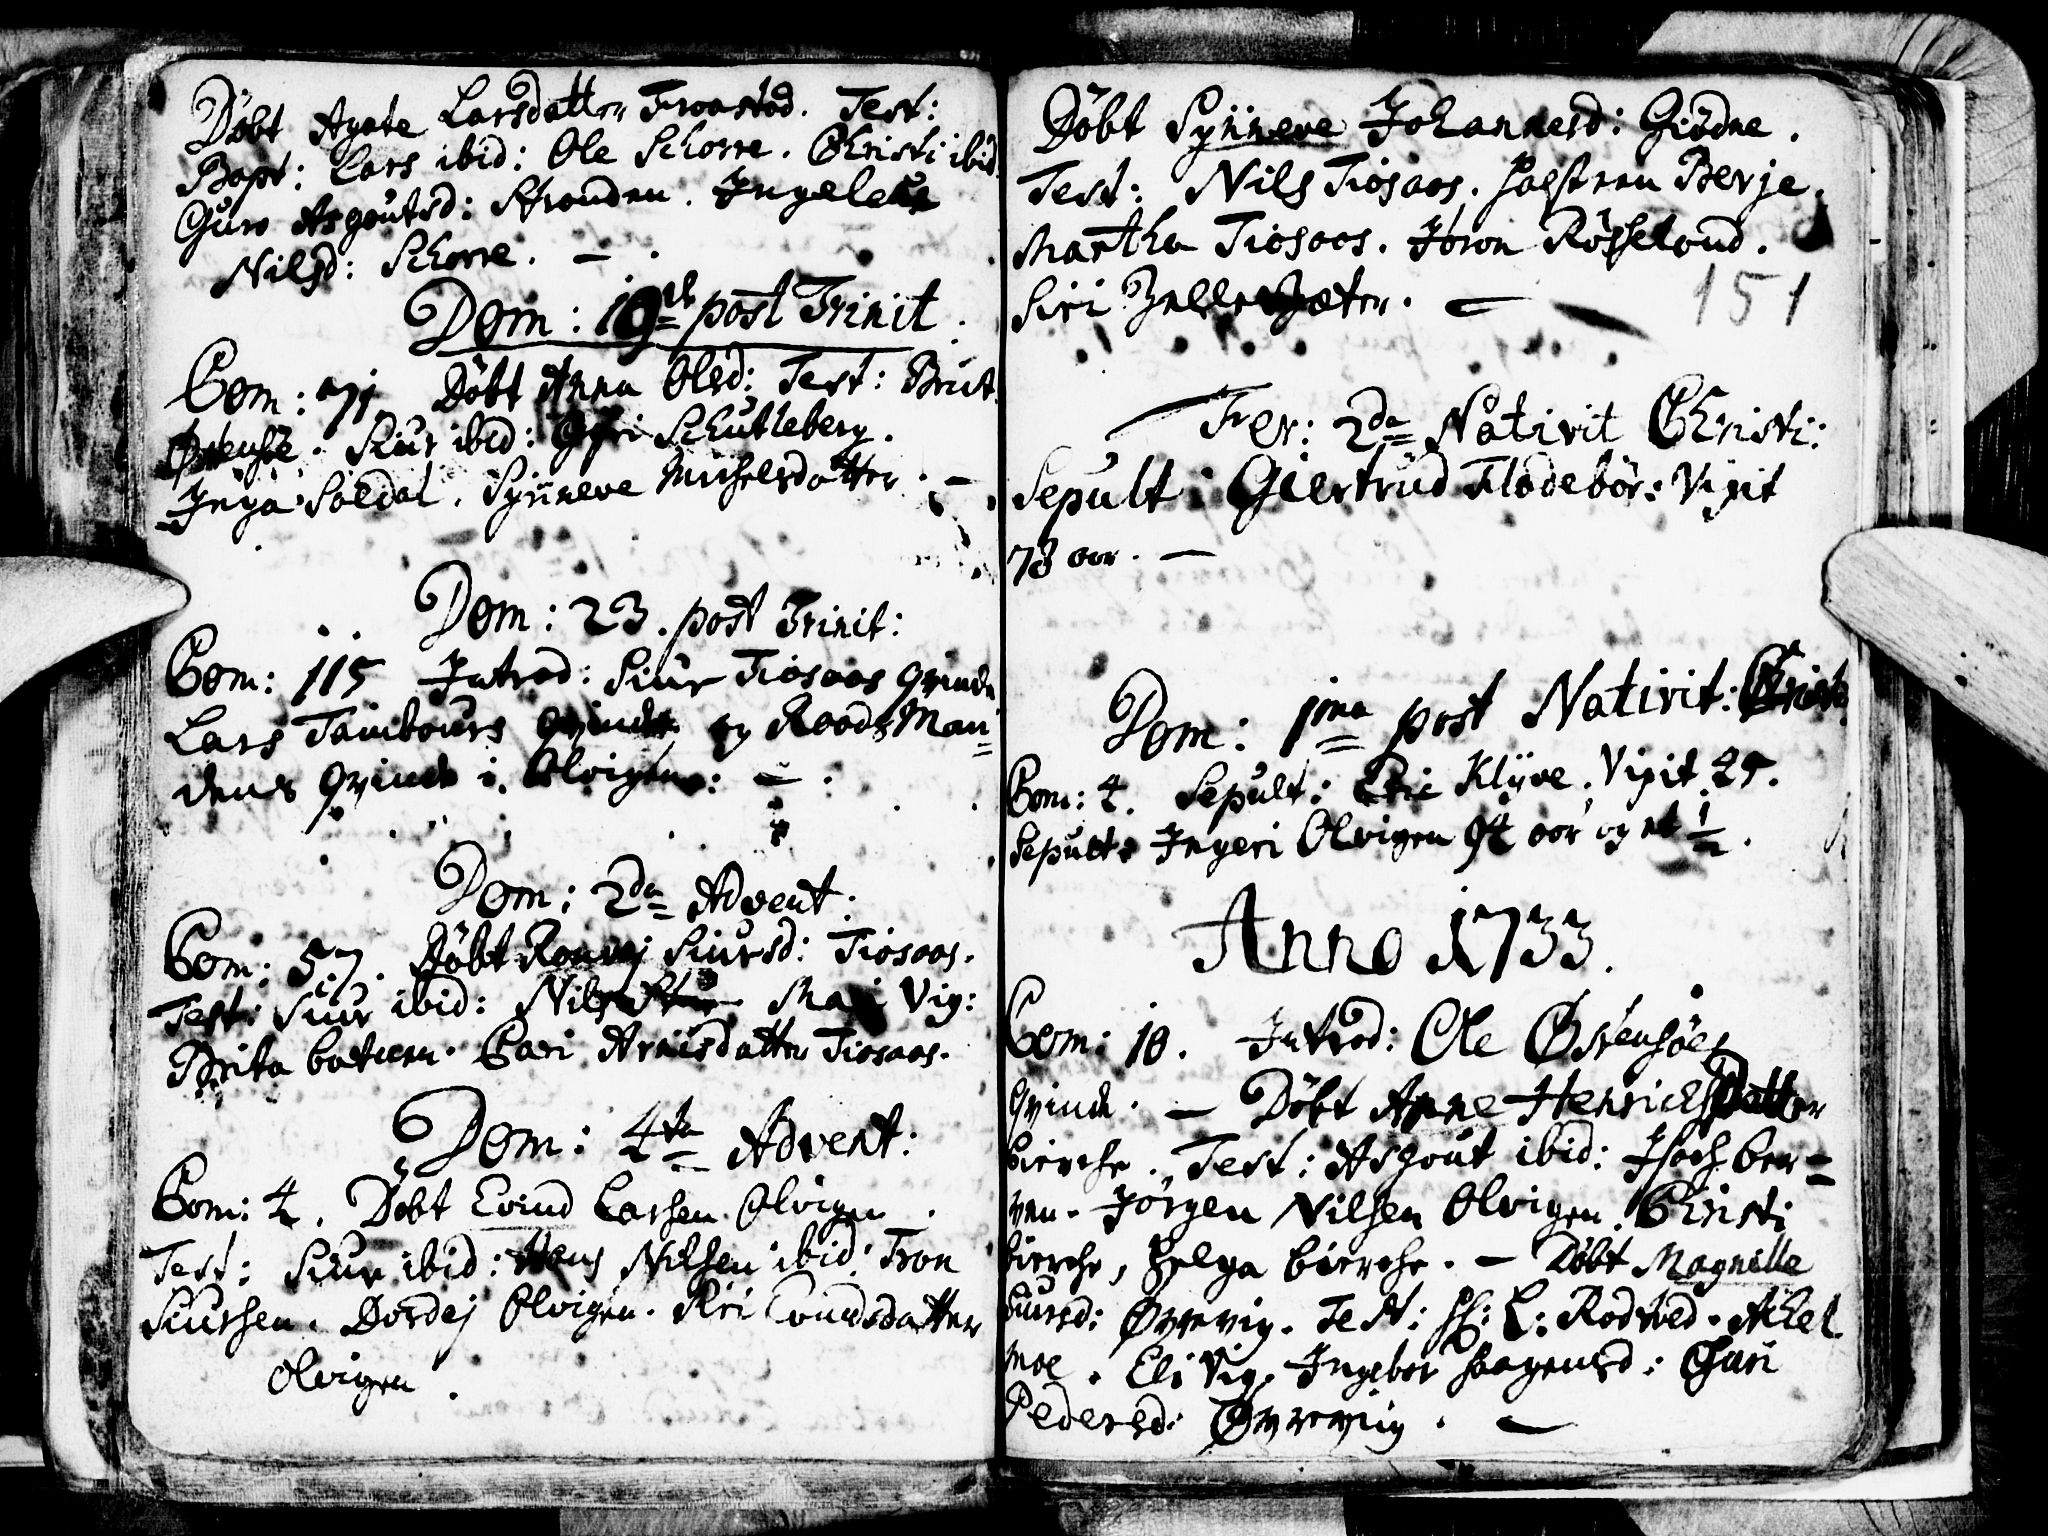 Döbt Agate Larsdatter Froastad. Test:
Bapt: Lars ibid: Ole Schorre. Christi ibid
Guro Asgoutsd: Stranden. Ingeleus
Nilsd: Schorre. —
Dom: 19de post Trinit.
Com: 71. Döbt Anna Olsd: Test: Brut.
Østensöe. Siur ibid: Gyri Schutleberg.
Inga Soldal. Synneve Michelsdatter. —
Dom: 23. post Trinit:
Com: 115 Introd: Siur Tiosaas qvinde
Lars Tambours qvinde og Roods Man=
dens qvinde i Olvigen: — :
Dom: 2da Advent:
Com: 57. Döbt Ronvej Siursd: Tiosaas.
Test: Siur ibid: Nils Mari Vig:
Brita Cari Arnisdatter Tiosaas.
Dom: 4ta Advent:
Com: 4. Döbt Evind Larsen Olvigen.
Test: Siur ibid: Hans Nilsen ibid: Tron
Siursen. Dordej Olvigen. Siri Evindsdatter
Olvigen.
Döbt Synneve Johannesd: Giödne.
Test: Nils Tiosaas. Berje.
Martha Tiosaas. Joron Rösseland.
Siri —
151
Fer: 2da Nativit Christi:
Sepult: Giertrud Flodebör: Vixit
78 aar. —
Dom: 1ma post Nativit: Christi
Com: 4. Sepult: Eric Klyve. Vixit 25.
Sepult: Ingeri Olvigen 94 aar og et 1/2.
Anno 1733.
Com: 10. Introd: Ole Østensöes
qvinde. — Döbt Anne Henrichsdatter
bierche. Test: Asgout ibid: ber=
ven. Jörgen Nilsen Olvigen. Christi
bierche, Helga bierche. — Döbt Magnille
Siursd: Øvrevig. Test: Hr: L: Rodtved. Achel
Moe. Eli Vig. Ingebor Haagensd: Guri
Pedersd: Øvrevig. —